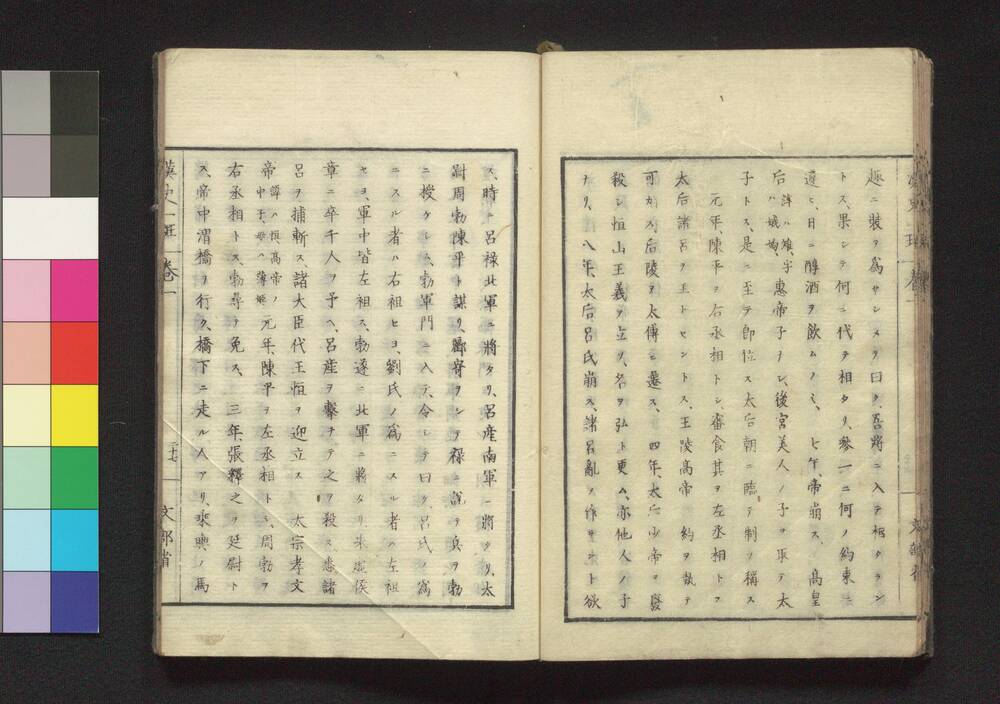 趣ニ裝ヲ爲サシメテ曰ク、吾將ニ入テ相タラン
トス、果シテ何ニ代テ相タリ、參一ニ何ノ約束ニ
遵ヒ、日ニ醇酒ヲ飲ムノミ、七年、帝崩ス、高皇
后 諱ハ雉、字ハ娥姁、惠帝子ナシ、後宮美人ノ子ヲ取テ太
子トス、是ニ至テ卽位ス太后朝ニ臨テ制ヲ稱ス
元年、陳平ヲ右丞相トシ、審食其ヲ左丞相トス
太后諸呂ヲ王トセントス、王陵高帝ノ約ヲ執テ
可カス、后陵ヲ太傅ニ遷ス、四年、太后少帝ヲ廢
殺シ恒山王義ヲ立ツ、名ヲ弘ト更ム、亦他人ノ子
ナリ、八年、太后呂氏崩ス、諸呂亂ヲ作サント欲
ス、時ニ呂祿北軍ニ將タリ、呂産南軍ニ將タリ、太
尉周勃陳平ト謀リ、酈寄ヲシテ祿ニ說テ兵ヲ勃
ニ授ケシム、勃軍門ニ入テ、令シテ曰ク、呂氏ノ爲
ニスル者ハ右袒セヨ、劉氏ノ爲ニスル者ハ左袒
セヨ、軍中皆左袒ス、勃遂ニ北軍ニ將タリ朱虛侯
章ニ卒千人ヲ予ヘ、呂産ヲ擊チテ之ヲ殺ス、悉諸
呂ヲ捕斬ス諸大臣代王恒ヲ迎立ス 太宗孝文
帝 諱ハ恒、高帝ノ中子、母ハ薄姬 元年、陳平ヲ左丞相トシ、周勃ヲ
右丞相トス、勃尋テ免ス、三年、張釋之ヲ廷尉ト
ス、帝中渭橋ヲ行ク、橋下ニ走ル人アリ乘輿ノ馬
漢史一班 卷一 文部省